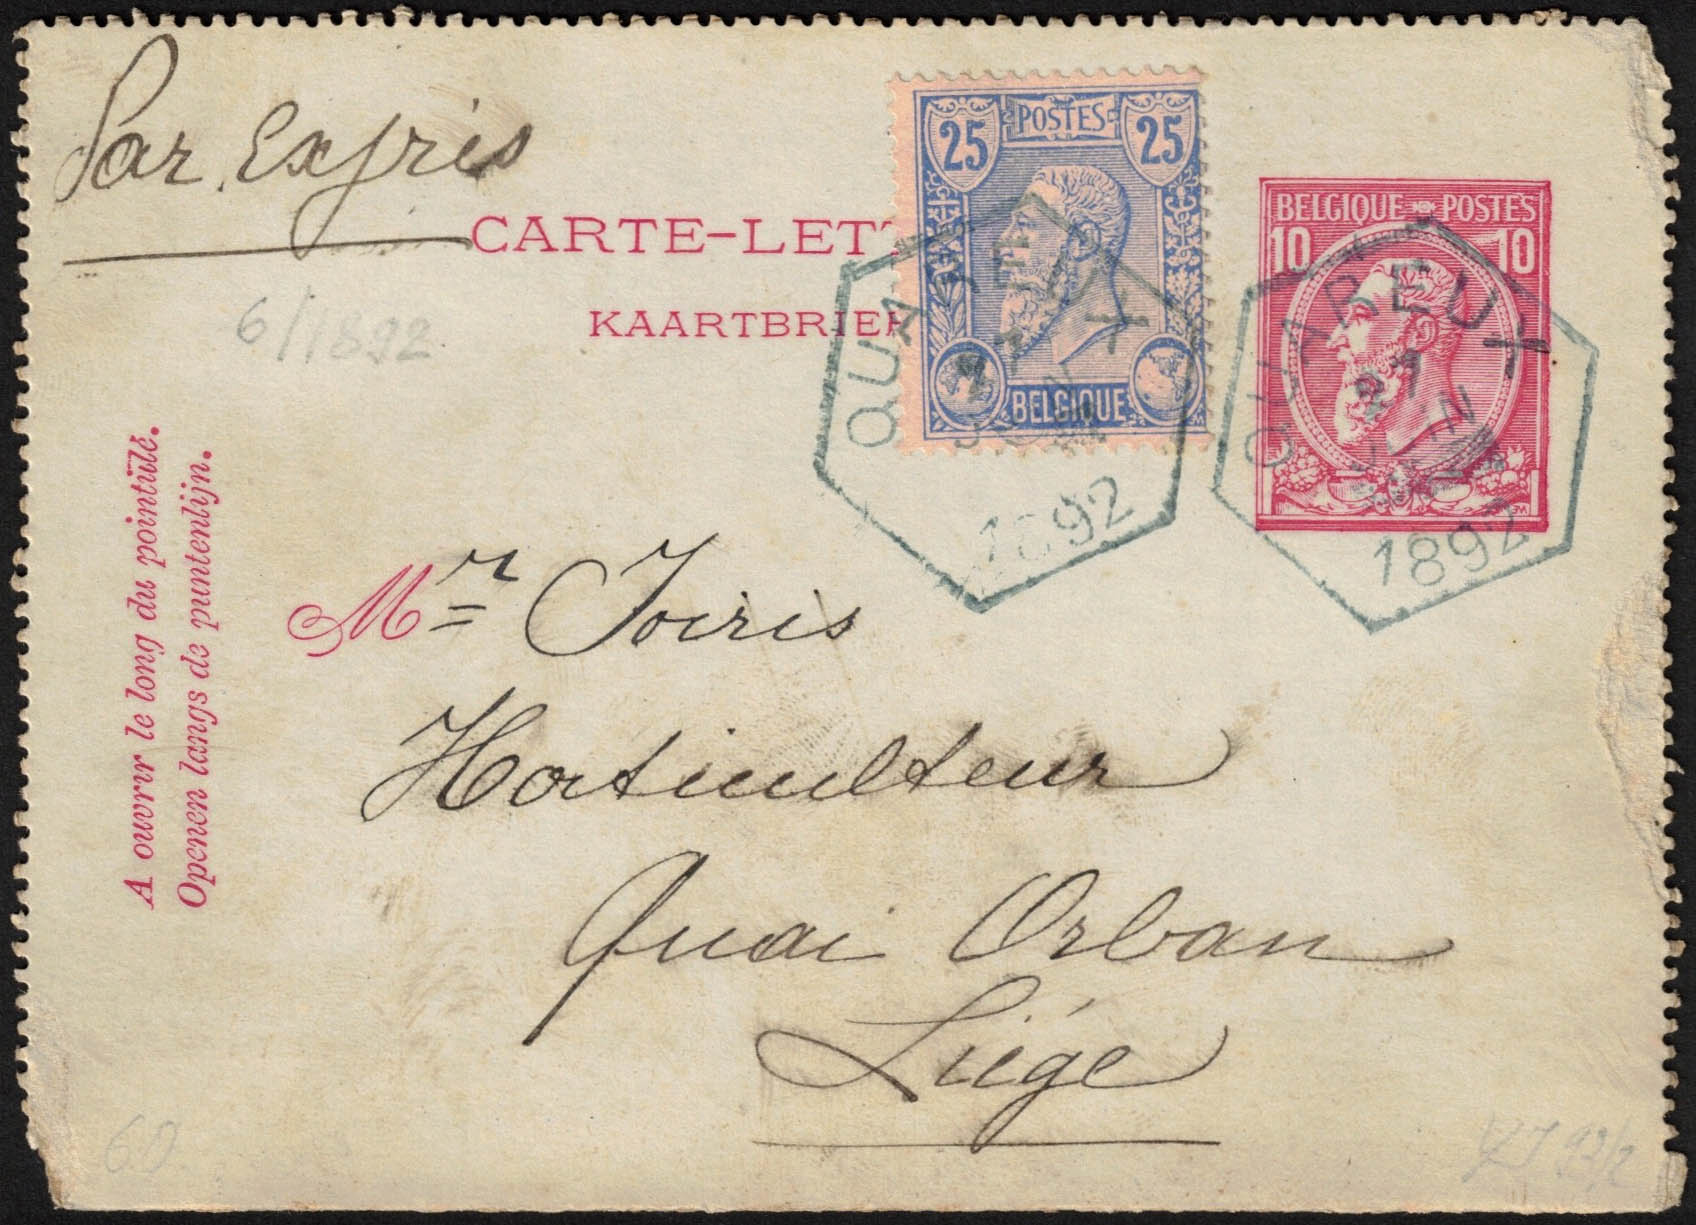 Par Exprès
CARTE-LETT
KAARTBRIEF
6/1892
25 POSTES 25
BELGIQUE
BELGIQUE POSTES
10 10
QUAREUX
27
JUIN
1892
QUAREUX
27
JUIN
1892
A ouvrir le long du pointillé.
Openen langs de puntenlijn.
Mr Joiris
Horticulteur
Quai Orban
Liége
60